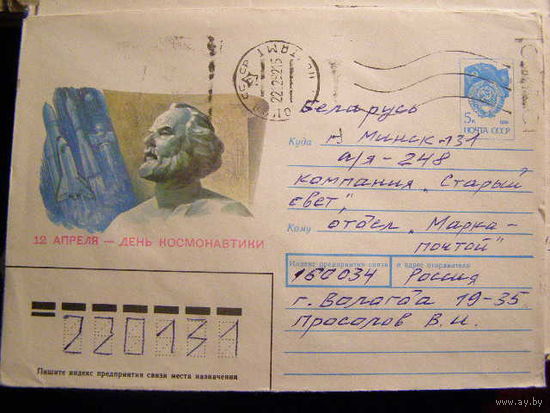 СССР
22 292 15
5к
ПОЧТА СССР
Беларусь
Куда г Минск 131
а/я - 248
компания "Старый
свет",
Кому отдел "Марка-
почтой"
12 АПРЕЛЯ — ДЕНЬ КОСМОНАВТИКИ
Индекс предприятия связи и адрес отправителя
160034 Россия
г. Валагда 19-35.
Просолов В.И.
220131
Пишите индекс предприятия связи места назначения
www.ay.by